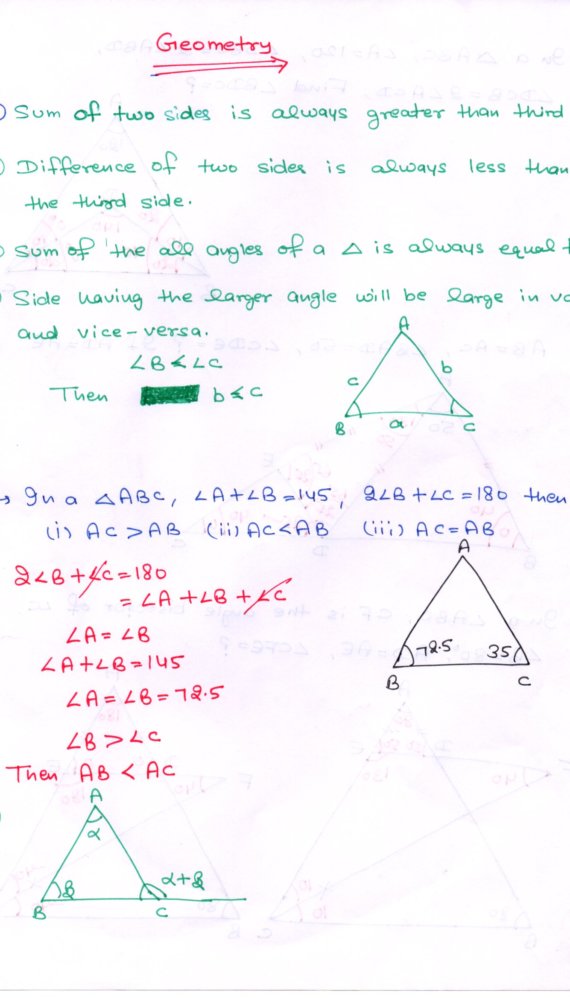 Geometry
Sum of two sides is always greater than third
Difference of two sides is always less than
the third side.
Sum of the all angles of a △ is always equal
Side having the larger angle will be large in
and vice-versa.
∠B < ∠C
Then b < c
A
c b
B a C
In a △ABC, ∠A+∠B=145, 2∠B+∠C=180 then
(i) AC > AB (ii) AC < AB (iii) AC = AB
A
72.5 35
B C
2∠B + ∠C = 180
= ∠A + ∠B + ∠C
∠A = ∠B
∠A + ∠B = 145
∠A = ∠B = 72.5
∠B > ∠C
Then AB < AC
A
α
β α+β
B C